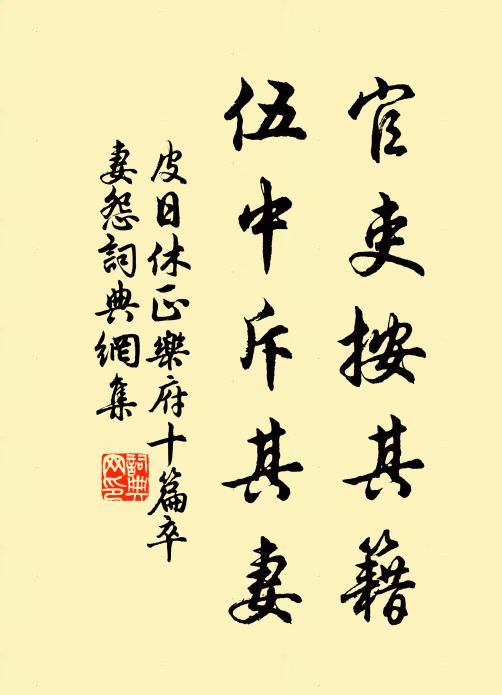 官吏按其籍
伍中斥其妻
皮日休正樂府十篇卒
妻怨詞典網集
詞典网印